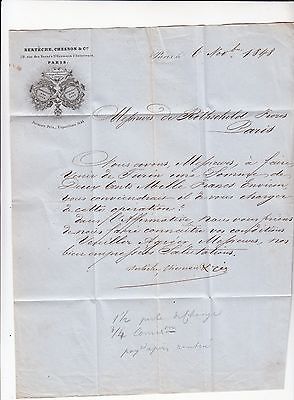 BERTÈCHE, CHESNON & Cie
PARIS.
Paris 6 Novbre 1848
Messieurs de Rothschild Frères
Paris
Nous avons, Messieurs, à faire
venir de Turin une Somme de
Deux Cents Mille Francs Environ
vous conviendrait-il de vous charger
de cette opération ?
Dans l'affirmative, Nous vous prions
de nous faire connaître vos conditions
Veuillez Agréer Messieurs, nos
bien empressées Salutations.
Bertèche Chesnon & Cie
1 1/2 perte de change
3/4 Comm
pay apres